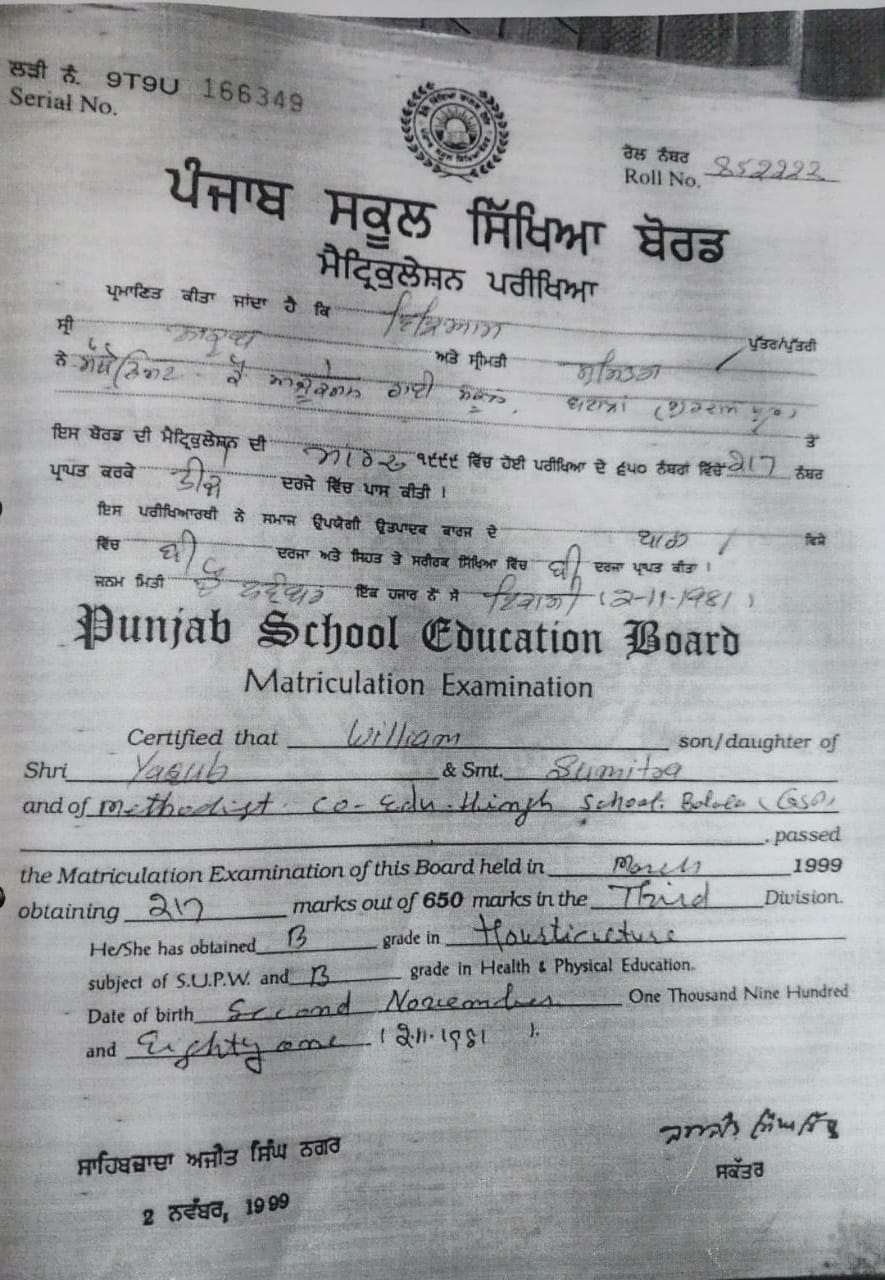 ਲੜੀ ਨੰ. 9T9U 166349
Serial No.
ਰੋਲ ਨੰਬਰ
Roll No. 852222
ਪੰਜਾਬ ਸਕੂਲ ਸਿੱਖਿਆ ਬੋਰਡ
ਮੈਟ੍ਰਿਕੁਲੇਸ਼ਨ ਪਰੀਖਿਆ
ਪ੍ਰਮਾਣਿਤ ਕੀਤਾ ਜਾਂਦਾ ਹੈ ਕਿ ਵਿਲਿਅਮ
ਪੁੱਤਰ/ਪੁੱਤਰੀ
ਸ੍ਰੀ ਯਾਕੂਬ ਅਤੇ ਸ੍ਰੀਮਤੀ
ਨੇ ਹਾਈ ਸਕੂਲ, ਬਟਾਲਾ
ਤੋਂ
ਇਸ ਬੋਰਡ ਦੀ ਮੈਟ੍ਰਿਕੁਲੇਸ਼ਨ ਦੀ ਮਾਰਚ ੧੯੯੯ ਵਿੱਚ ਹੋਈ ਪਰੀਖਿਆ ਦੇ ੬੫੦ ਨੰਬਰਾਂ ਵਿੱਚੋਂ 217 ਨੰਬਰ
ਪ੍ਰਾਪਤ ਕਰਕੇ ਤੀਜੇ ਦਰਜੇ ਵਿੱਚ ਪਾਸ ਕੀਤੀ ।
ਇਸ ਪਰੀਖਿਆਰਥੀ ਨੇ ਸਮਾਜ ਉਪਯੋਗੀ ਉਤਪਾਦਕ ਕਾਰਜ ਦੇ ਵਿਸ਼ੇ
ਵਿੱਚ ਬੀ ਦਰਜਾ ਅਤੇ ਸਿਹਤ ਤੇ ਸਰੀਰਕ ਸਿੱਖਿਆ ਵਿੱਚ ਬੀ ਦਰਜਾ ਪ੍ਰਾਪਤ ਕੀਤਾ ।
ਜਨਮ ਮਿਤੀ ਦੋ ਨਵੰਬਰ ਇੱਕ ਹਜ਼ਾਰ ਨੌਂ ਸੌ ਇਕਾਸੀ (2-11-1981)
Punjab School Education Board
Matriculation Examination
Certified that William son/daughter of
Shri Yaqub & Smt. Sumitra
and of Methodist Co-Edu. High School. Batala (GSP)
, passed
the Matriculation Examination of this Board held in March 1999
obtaining 217 marks out of 650 marks in the Third Division.
He/She has obtained B grade in
subject of S.U.P.W. and B grade in Health & Physical Education.
Date of birth Second November One Thousand Nine Hundred
and Eighty one (2-11-1981).
ਸਕੱਤਰ
ਸਾਹਿਬਜ਼ਾਦਾ ਅਜੀਤ ਸਿੰਘ ਨਗਰ
2 ਨਵੰਬਰ, 1999